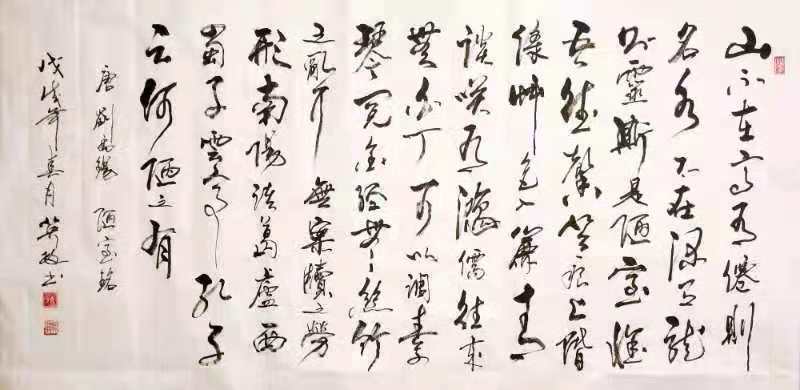 山不在高有僊則
名水不在深有龍
則靈斯是陋室惟
吾德馨苔痕上階
綠艸色入簾青
談笑有鴻儒往來
無白丁可以調素
琴閱金經無絲竹
之亂耳無案牘之勞
形南陽諸葛廬西
蜀子雲亭孔子
云何陋之有
唐劉禹錫 陋室銘
戊戌年 月 书